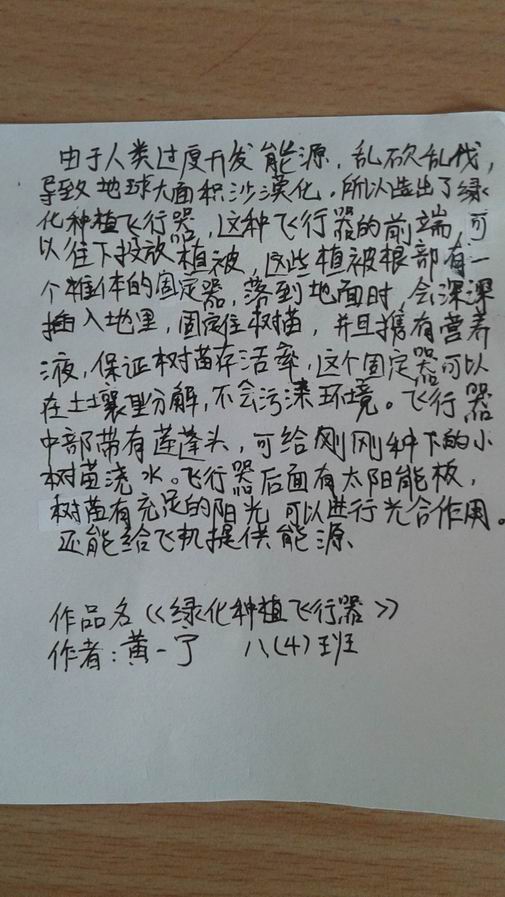 由于人类过度开发能源，乱砍乱伐，
导致地球大面积沙漠化，所以造出了绿
化种植飞行器，这种飞行器的前端，可
以往下投放植被，这些植被根部有一
个椎体的固定器，落到地面时，会深深
插入地里，固定住树苗，并且携有营养
液，保证树苗存活率，这个固定器可以
在土壤里分解，不会污染环境。飞行器
中部带有莲蓬头，可给刚刚种下的小
树苗浇水。飞行器后面有太阳能板，
树苗有充足的阳光 可以进行光合作用。
还能给飞机提供能源、
作品名《绿化种植飞行器》
作者：黄一宁 八(4)班